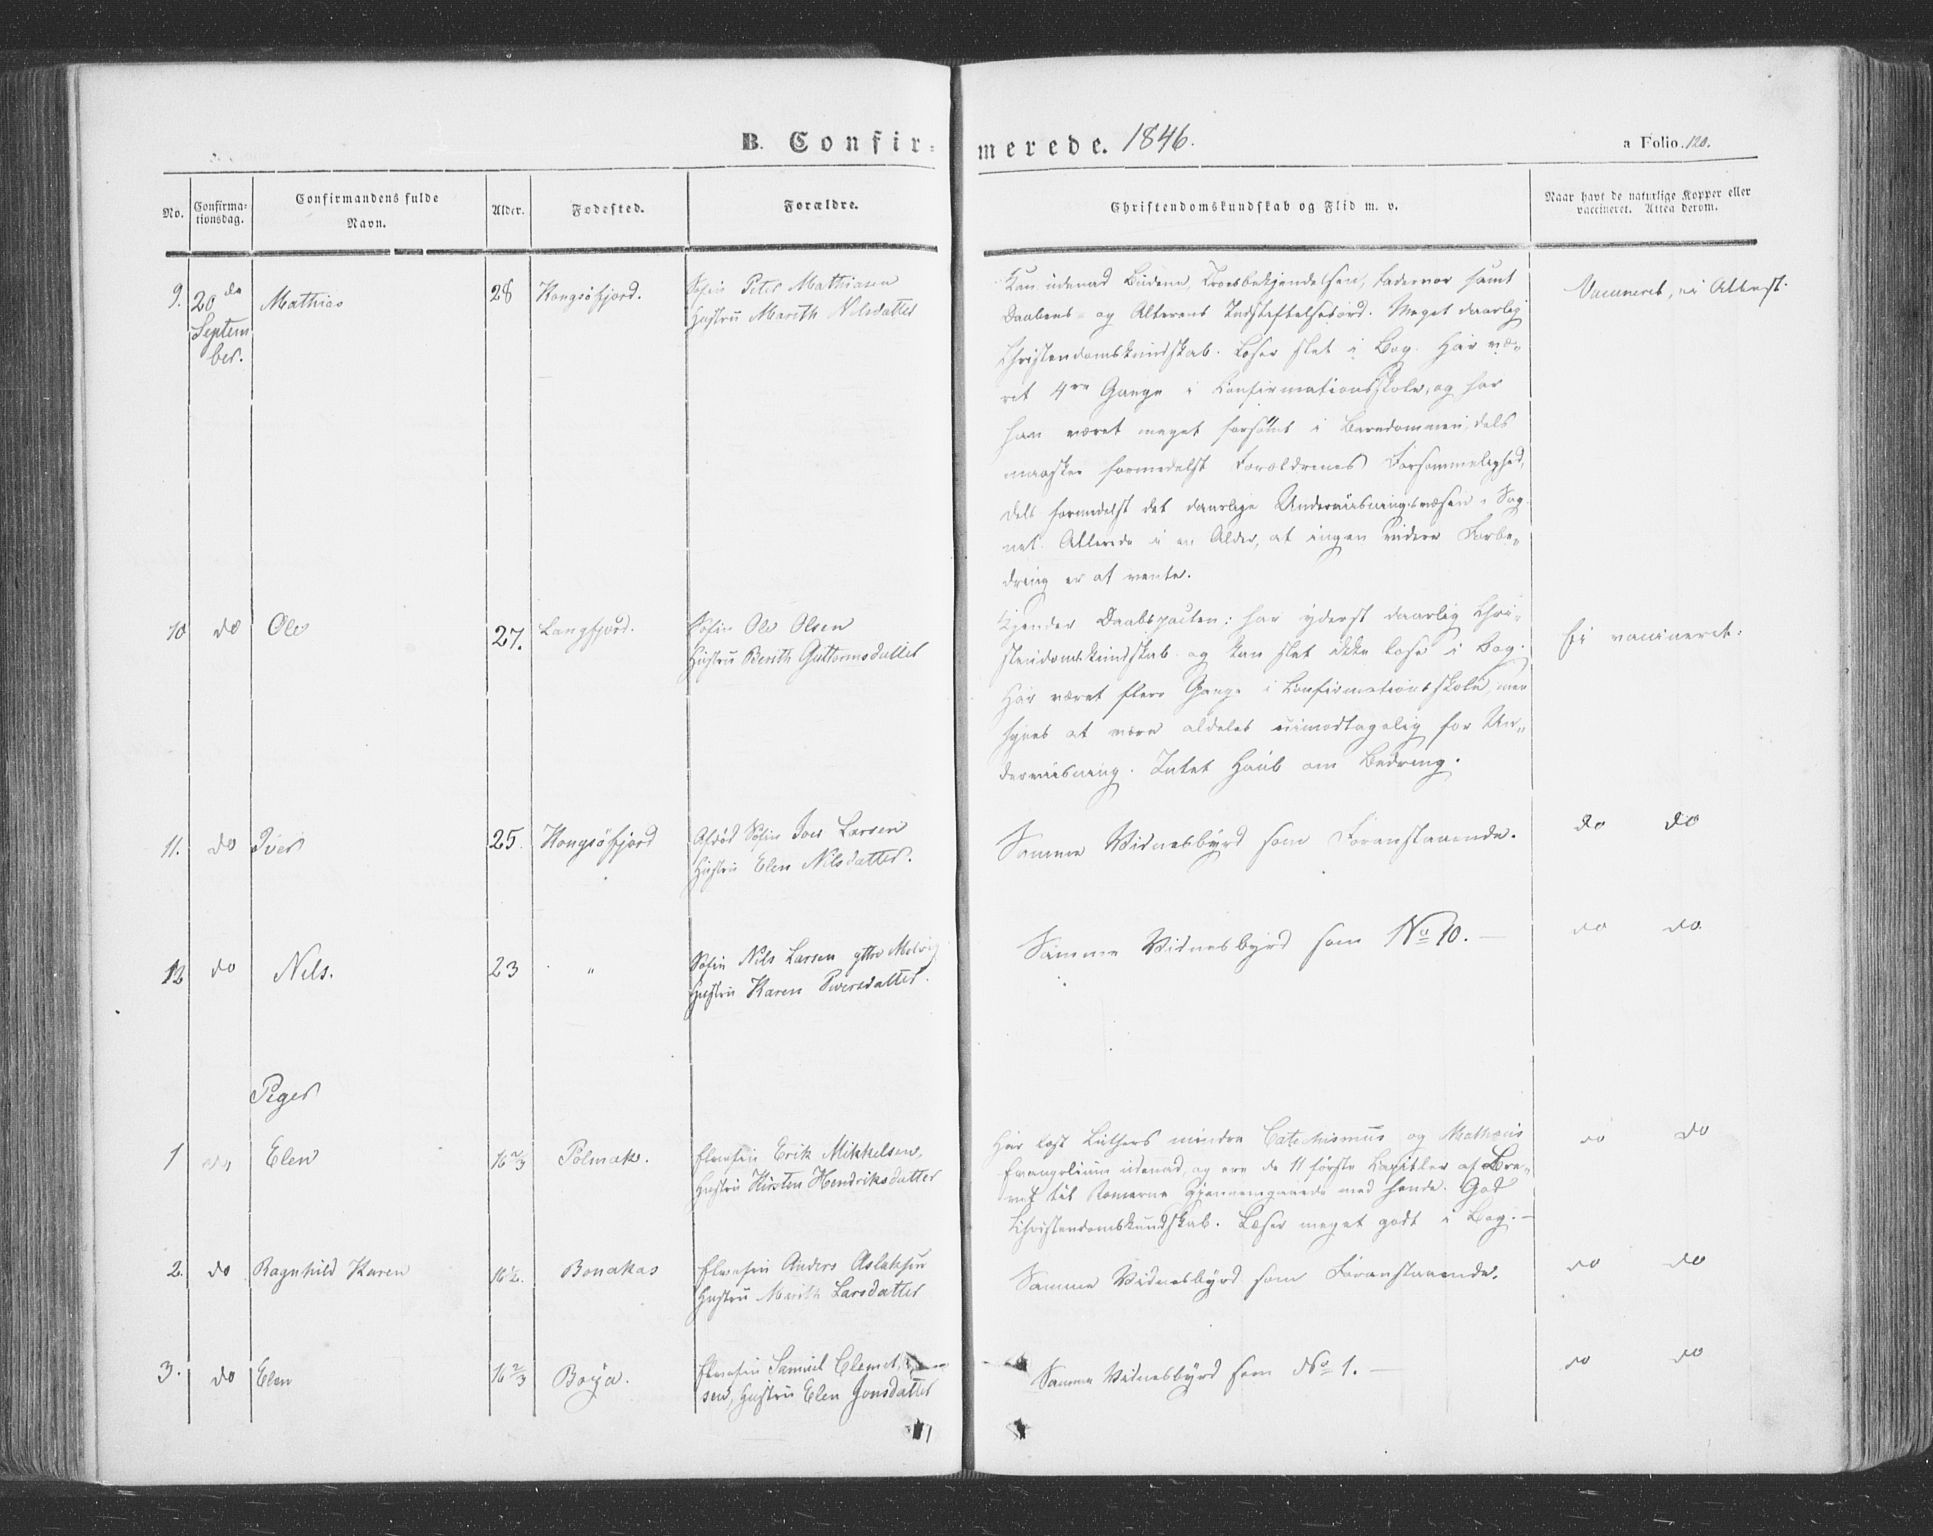 B. Confir-
merede. 1846.
a Folio. 120.
No.
Confirma-
tionsdag.
Confirmandens fulde
Navn.
Alder.
Fødested.
Forældre.
Christendomskundskab og Flid m. v.
Naar havt de naturlige Kopper eller
vaccineret. Attea derom.
9.
20de
Septem
ber.
Mathias
28
Kongsöfjord.
Søfin Peter Mathiasen
Hustru Marith Nilsdatter
Kan udenad Budene, Troesbekjendelsen, Fadervor samt
Daabens og Alterens Indstiftelsesord. Meget daarlig
Christendomskundskab. Læser slet i Bog. Har væ-
ret 4re Gange i Confirmationsskole, og har
han været meget forsömt i Barndommen, dels
maaskee formedelst Forældrenes Forsømmelighed,
dels formedelst det daarlige Underviisningsvæsen i Sog
net. Allerede i en Alder, at ingen videre Forbe-
dring er at vente.
Vaccineret, ei Attest.
10 do Ole 27. Langfjord.
Søfin Ole Olsen
Hustru Berith Guttormsdatter
Kjender Daabspacten; har yderst daarlig Chri-
stendomskundskab og kan slet ikke læse i Bog.
Har været flere Gange i Confirmationsskole, men
synes at være aldeles uimodtagelig for Un-
derviisning. Intet Haab om Bedring.
Ei vaccineret.
11. do Iver 25. Kongsöfjord
Afdød Søfin Iver Larsen
Hustru Elen Nilsdatter.
Samme Vidnesbyrd som Foranstaaende.
do do
12 do Nils. 23 "
Søfin Nils Larsen
Hustru Karen Iversdatter.
Samme Vidnesbyrd som No 10. —
do do
Piger
1 do Elen 16 2/3 Polmak.
Elvefin Erik Mikkelsen,
Hustru Kirsten Hendriksdatter
Har læst Luthers mindre Catechismus og Mathæus
Evangelium udenad, og ere de 11 første Capitler af Bre-
vet til Romerne gjennemgaaede med hende. God
Christendomskundskab. Læser meget godt i Bog. —
do do
2. do Ragnhild Karen 16 1/2. Bonakas
Elvefin Anders Aslaksen
Hustru Marith Larsdatter
Samme Vidnesbyrd som Foranstaaende.
do do
3. do Elen 16 2/3 Borja.
Elvefin Samuel Clemet
sen, Hustru Elen Jonsdatter
Samme Vidnesbyrd som No 1. —
do do